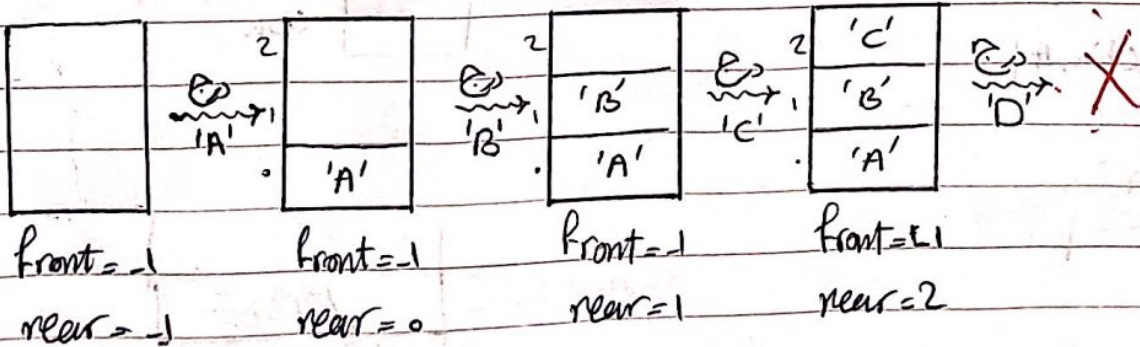 2 2 2 'C'
'B' 'B'
'A' 1 'B' 1 'C' 1 'D'
. 'A' . 'A' . 'A'
front=-1 front=-1 front=-1 front=-1
rear=-1 rear=0 rear=1 rear=2